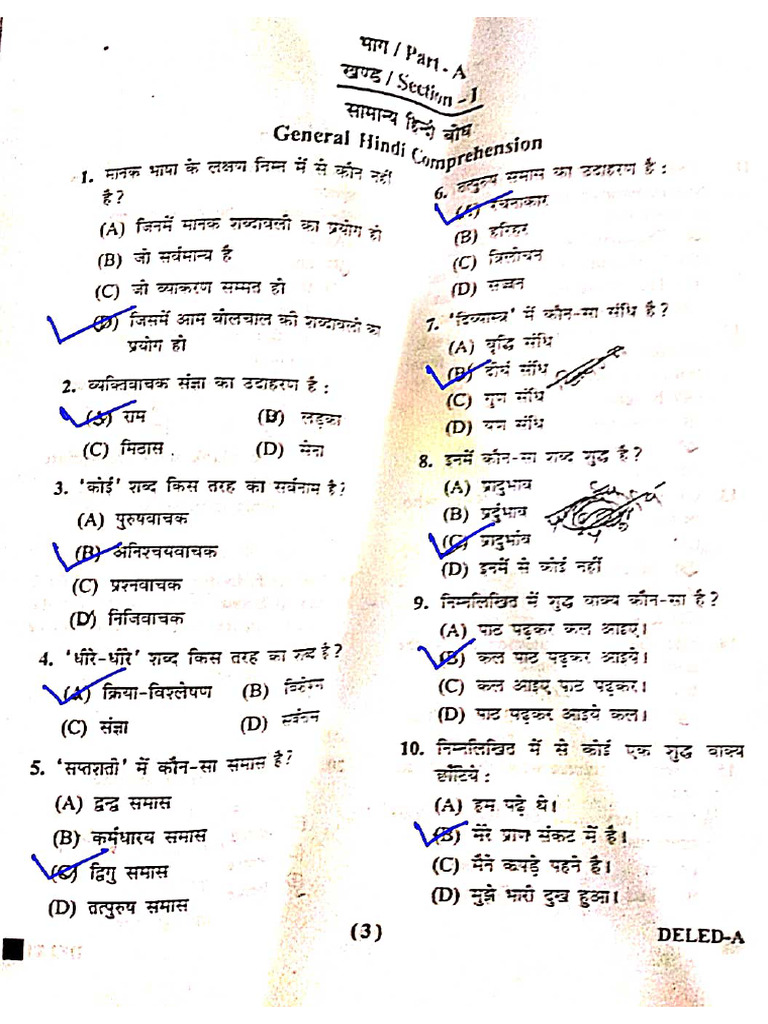 भाग / Part - A
खण्ड / Section - I
सामान्य हिन्दी बोध
General Hindi Comprehension
1. मानक भाषा के लक्षण निम्न में से कौन नहीं
है?
(A) जिनमें मानक शब्दावली का प्रयोग हो
(B) जो सर्वमान्य है
(C) जो व्याकरण सम्मत हो
(D) जिसमें आम बोलचाल की शब्दावली का
प्रयोग हो
2. व्यक्तिवाचक संज्ञा का उदाहरण है :
(A) राम (B) लड़का
(C) मिठास (D) सेना
3. 'कोई' शब्द किस तरह का सर्वनाम है?
(A) पुरुषवाचक
(B) अनिश्चयवाचक
(C) प्रश्नवाचक
(D) निजिवाचक
4. 'धीरे-धीरे' शब्द किस तरह का शब्द है?
(A) क्रिया-विश्लेषण (B) विशेषण
(C) संज्ञा (D) सर्वनाम
5. 'सप्तराती' में कौन-सा समास है?
(A) द्वन्द्व समास
(B) कर्मधारय समास
(C) द्विगु समास
(D) तत्पुरुष समास
6. तत्पुरुष समास का उदाहरण है :
(A) रचनाकार
(B) हरिहर
(C) त्रिलोचन
(D) सज्जन
7. 'दिव्यास्त्र' में कौन-सा संधि है?
(A) वृद्धि संधि
(B) दीर्घ संधि
(C) गुण संधि
(D) यण संधि
8. इनमें कौन-सा शब्द शुद्ध है?
(A) प्रादुभाव
(B) प्रर्दुभाव
(C) प्रादुर्भाव
(D) इनमें से कोई नहीं
9. निम्नलिखित में शुद्ध वाक्य कौन-सा है?
(A) पाठ पढ़कर कल आइए।
(B) कल पाठ पढ़कर आइये।
(C) कल आइए पाठ पढ़कर।
(D) पाठ पढ़कर आइये कल।
10. निम्नलिखित में से कोई एक शुद्ध वाक्य
छाँटिये :
(A) हम पढ़े थे।
(B) मेरे प्राण संकट में है।
(C) मैंने कपड़े पहने है।
(D) मुझे भारी दुख हुआ।
(3)
DELED-A